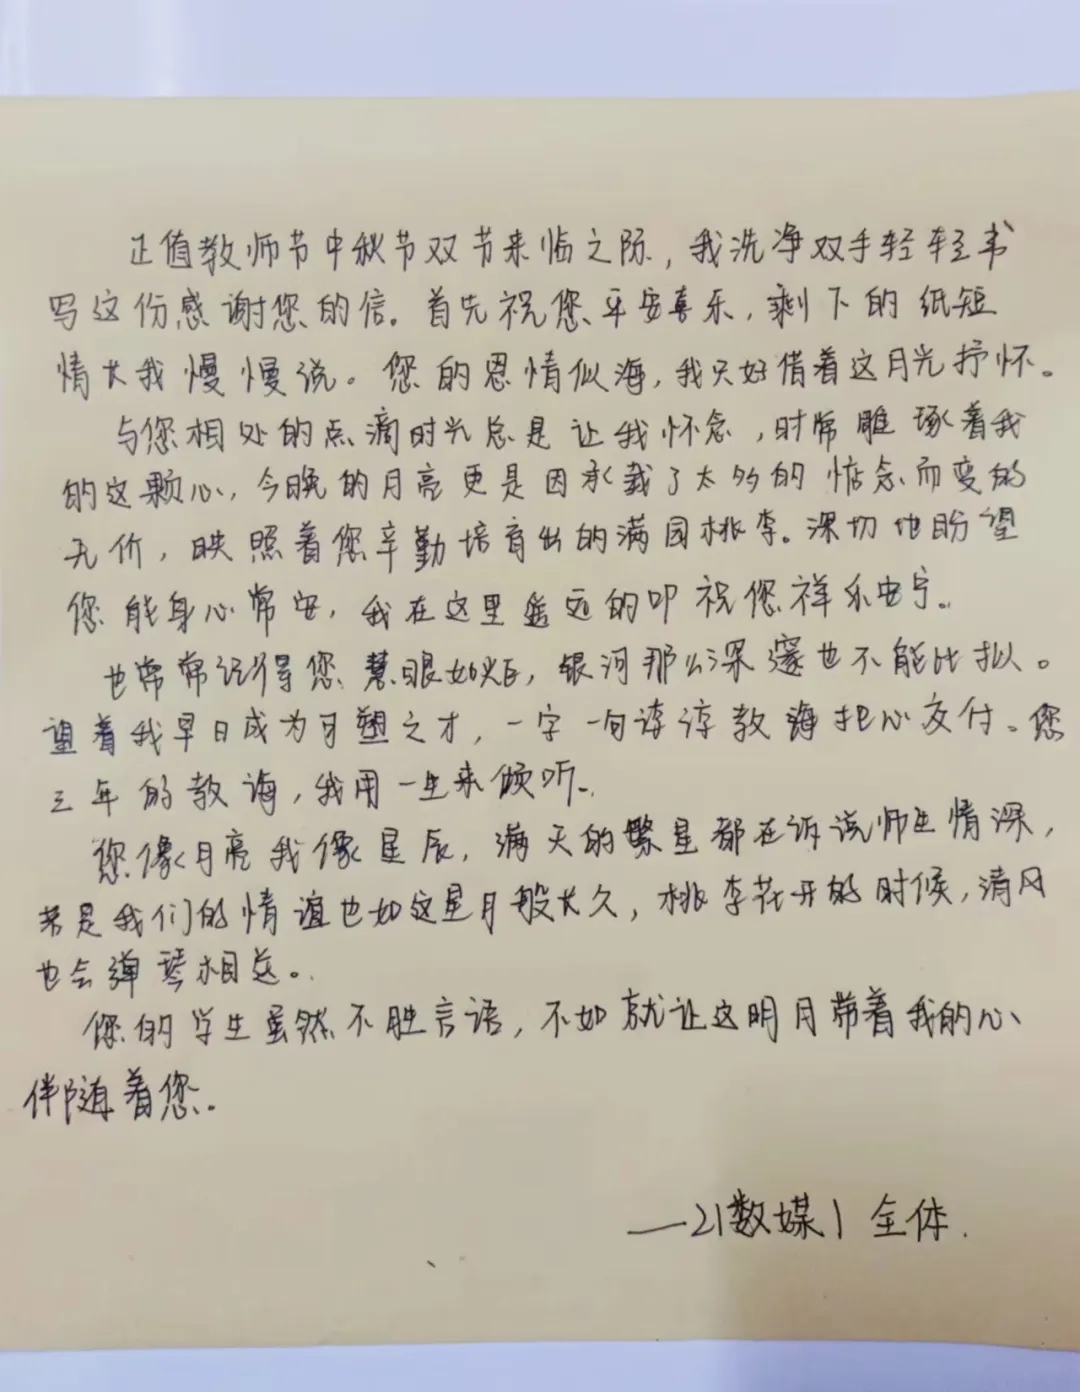 正值教师节中秋节双节来临之际，我洗净双手轻轻书
写这份感谢您的信。首先祝您平安喜乐，剩下的纸短
情长我慢慢说。您的恩情似海，我只好借着这月光抒怀。
与您相处的点滴时光总是让我怀念，时常雕琢着我
的这颗心，今晚的月亮更是因承载了太多的惦念而变的
无价，映照着您辛勤培育出的满园桃李。深切地盼望
您能身心常安，我在这里遥远的叩祝您祥乐安宁。
也常常记得您慧眼如炬，银河那么深邃也不能比拟。
望着我早日成为可塑之才，一字一句谆谆教诲把心交付。您
三年的教诲，我用一生来倾听。
您像月亮我像星辰，满天的繁星都在诉说师生情深，
若是我们的情谊也如这星月般长久，桃李花开的时候，清风
也会弹琴相送。
您的学生虽然不胜言语，不如就让这明月带着我的心
伴随着您。
——21数媒1全体.